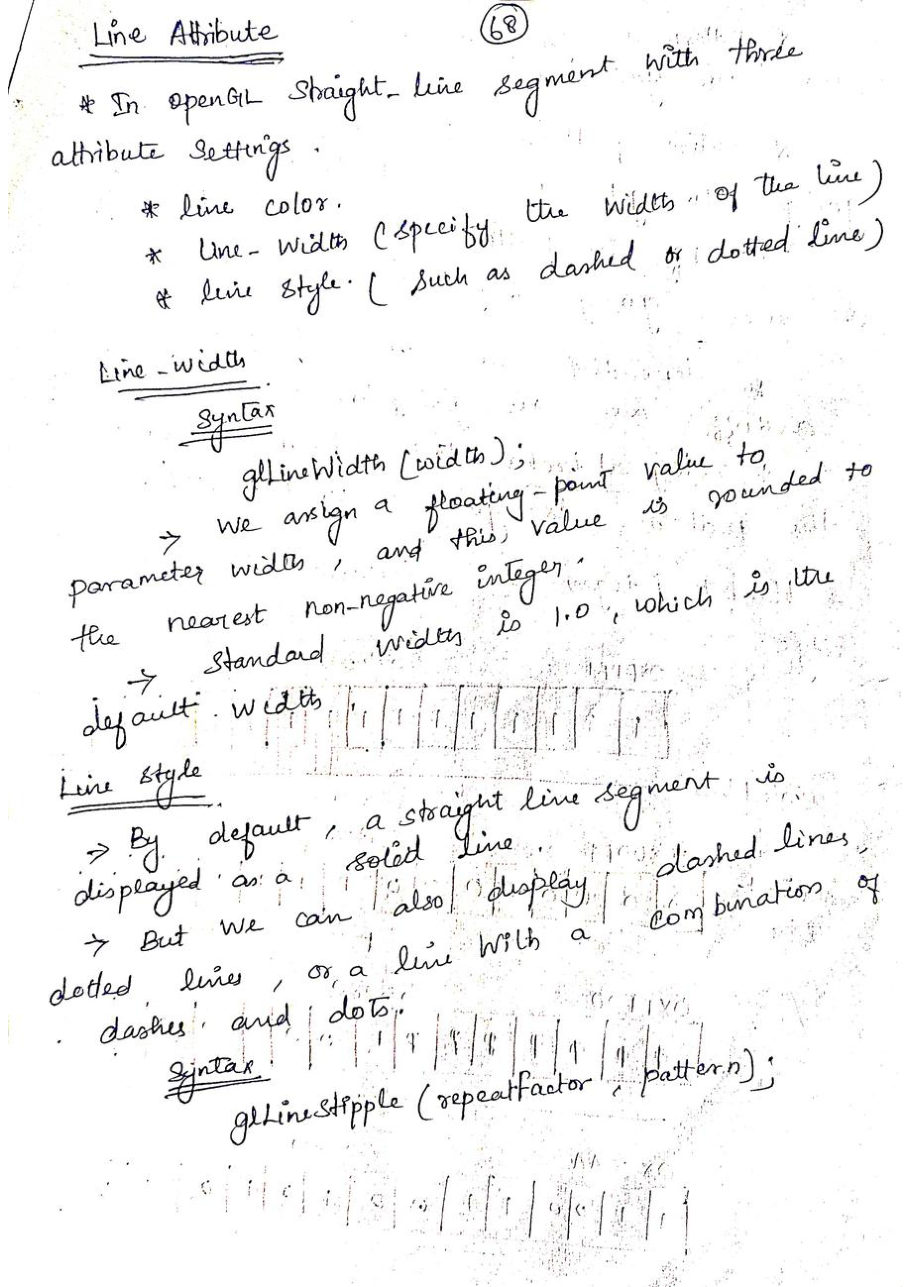 Line Attribute
68
* In openGL Straight-line segment with three
attribute Settings.
* line color.
* Line-width (specify the width of the line)
* line style. (such as dashed or dotted line)
Line-width
Syntax
glLineWidth (width);
→ We assign a floating-point value to
parameter width, and this value is rounded to
the nearest non-negative integer.
→ Standard width is 1.0, which is the
default width.
Line Style
→ By default, a straight line segment is
displayed as a solid line.
→ But we can also display dashed lines,
dotted lines, or a line with a combination of
dashes and dots.
Syntax
glLineStipple (repeatFactor, pattern);